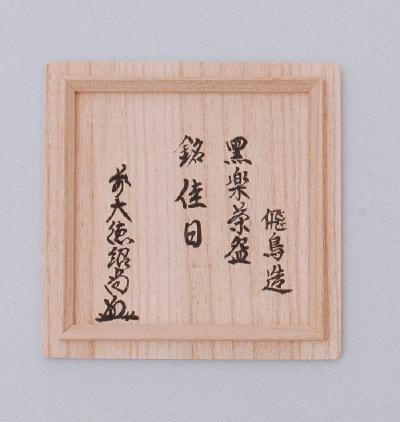 飛鳥造
黒楽茶盌
銘 佳日
前大徳紹尚